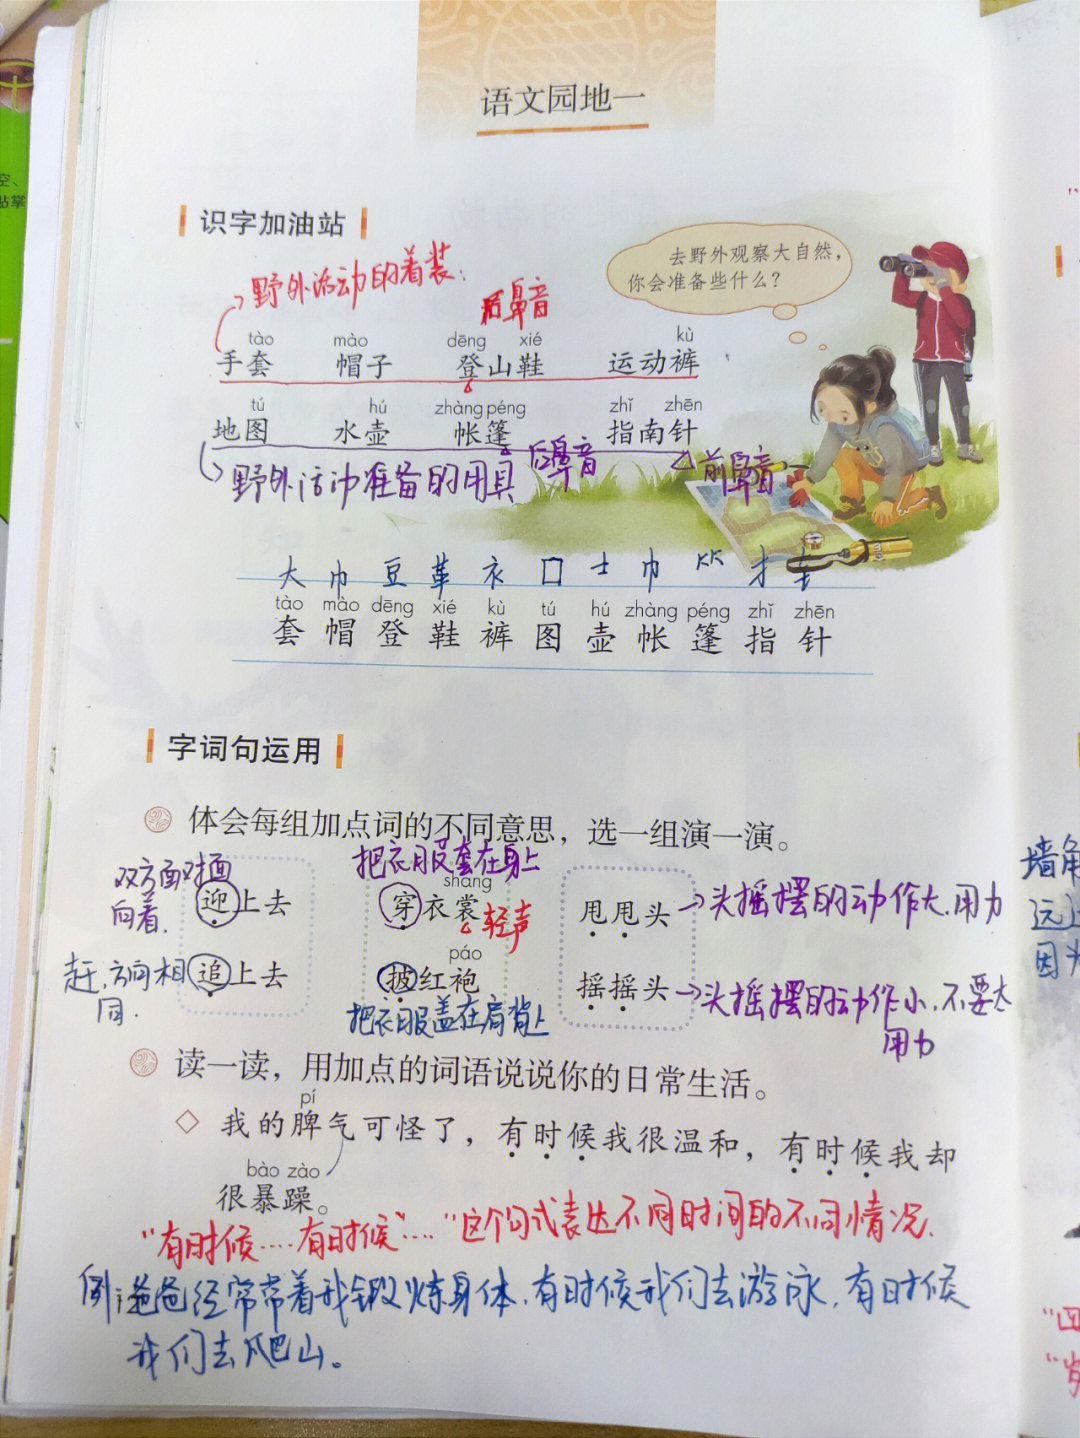 语文园地一
识字加油站
去野外观察大自然，
你会准备些什么？
野外活动的着装：
后鼻音
tào mào dēng xié kù
手套 帽子 登山鞋 运动裤
tú hú zhàng péng zhǐ zhēn
地图 水壶 帐篷 指南针
野外活动准备的用具 后鼻音 前鼻音
大 巾 豆 革 衣 囗 士 巾 ⺮ 扌 钅
tào mào dēng xié kù tú hú zhàng péng zhǐ zhēn
套 帽 登 鞋 裤 图 壶 帐 篷 指 针
字词句运用
体会每组加点词的不同意思，选一组演一演。
双方面对面
向着.
迎上去
赶,方向相
同.
追上去
把衣服套在身上
shang
穿衣裳 轻声
páo
披红袍
把衣服盖在肩背上
甩甩头 头摇摆的动作大,用力
摇摇头 头摇摆的动作小,不要太
用力
读一读，用加点的词语说说你的日常生活。
pí
我的脾气可怪了，有时候我很温和，有时候我却
bào zào
很暴躁。
“有时候....有时候”....“这个句式表达不同时间的不同情况.
例：爸爸经常带着我锻炼身体,有时候我们去游泳,有时候
我们去爬山。
墙角
因为